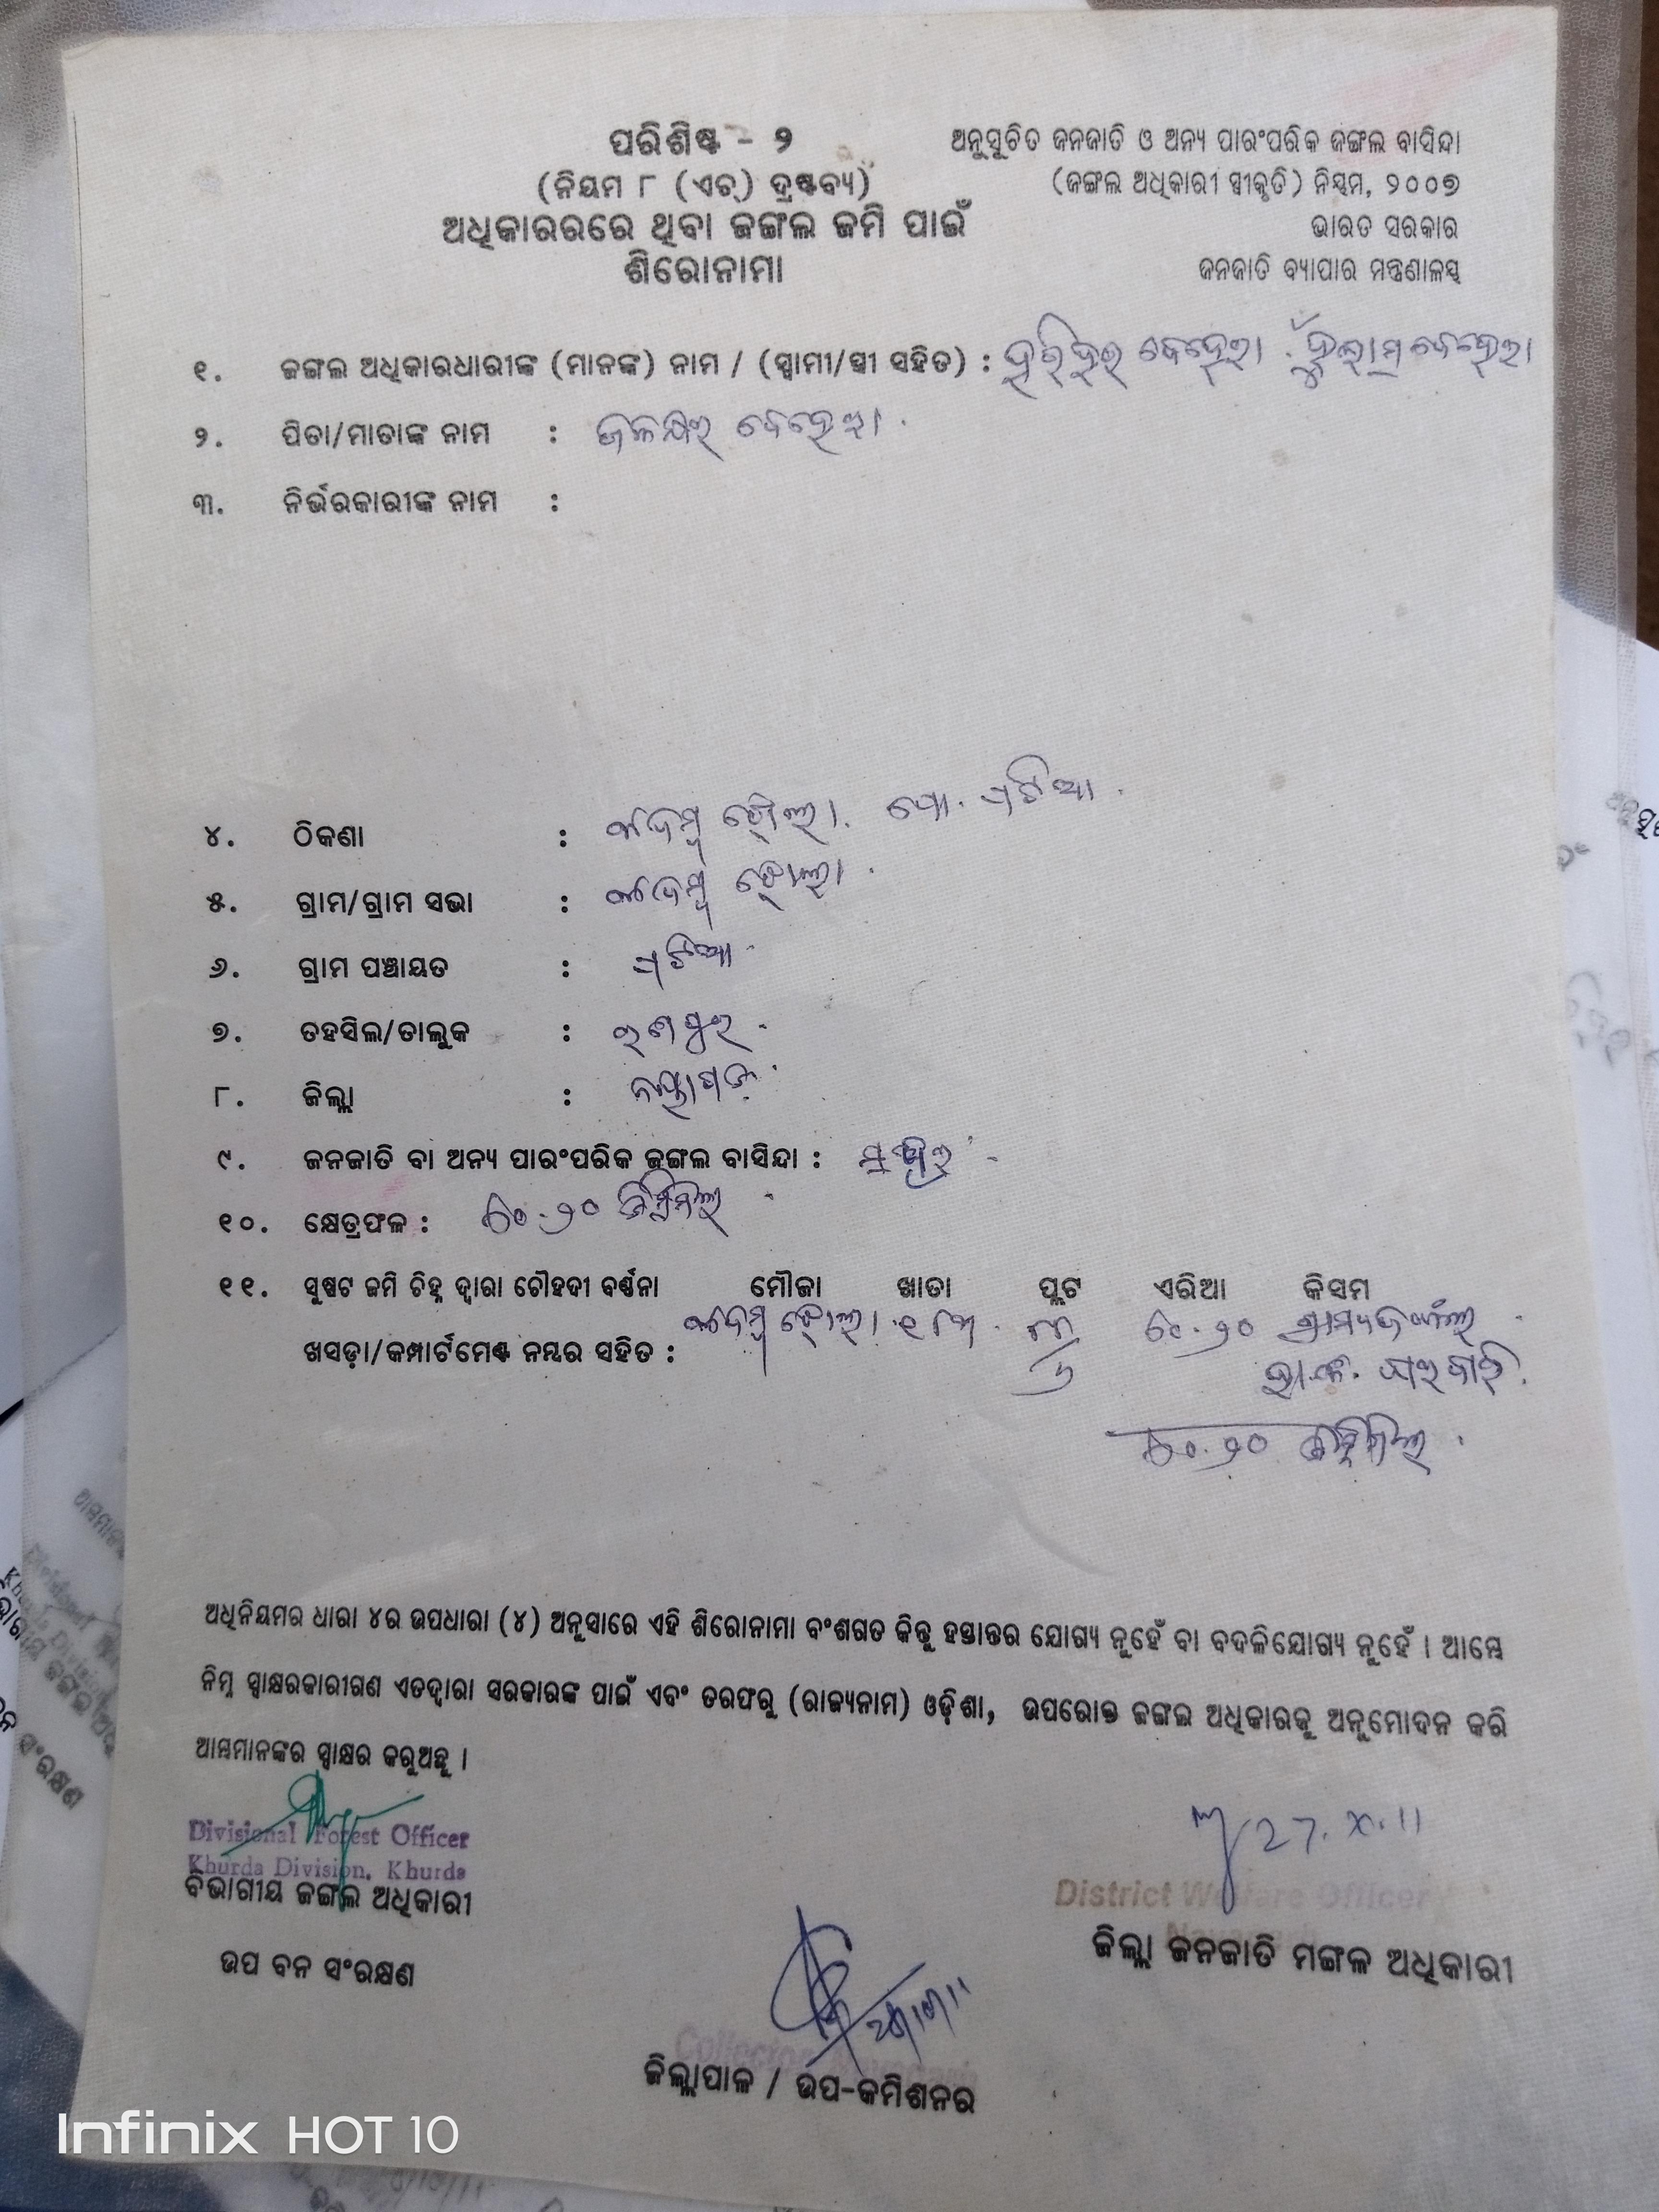 ପରିଶିଷ୍ଟ - ୨
(ନିୟମ ୮ (ଏଚ୍) ଦ୍ରଷ୍ଟବ୍ୟ)
ଅଧିକାରରରେ ଥିବା ଜଙ୍ଗଲ ଜମି ପାଇଁ
ଶିରୋନାମା
ଅନୁସୂଚିତ ଜନଜାତି ଓ ଅନ୍ୟ ପାରଂପରିକ ଜଙ୍ଗଲ ବାସିନ୍ଦା
(ଜଙ୍ଗଲ ଅଧିକାରୀ ସ୍ୱୀକୃତି) ନିୟମ, ୨୦୦୭
ଭାରତ ସରକାର
ଜନଜାତି ବ୍ୟାପାର ମନ୍ତ୍ରଣାଳୟ
୧. ଜଙ୍ଗଲ ଅଧିକାରଧାରୀଙ୍କ (ମାନଙ୍କ) ନାମ / (ସ୍ୱାମୀ/ସ୍ତ୍ରୀ ସହିତ) : ହରିହର ବେହେରା
୨. ପିତା/ମାତାଙ୍କ ନାମ : ବେହେରା
୩. ନିର୍ଭରକାରୀଙ୍କ ନାମ :
୪. ଠିକଣା : କଦମ୍ବ ଝୋଲା. ପୋ.
୫. ଗ୍ରାମ/ଗ୍ରାମ ସଭା : କଦମ୍ବ ଝୋଲା
୬. ଗ୍ରାମ ପଞ୍ଚାୟତ :
୭. ତହସିଲ/ତାଲୁକ : ରଣପୁର
୮. ଜିଲ୍ଲା : ନୟାଗଡ଼
୯. ଜନଜାତି ବା ଅନ୍ୟ ପାରଂପରିକ ଜଙ୍ଗଲ ବାସିନ୍ଦା :
୧୦. କ୍ଷେତ୍ରଫଳ : ୦.୨୦ ଡିସିମିଲ
୧୧. ସୁଷ୍ପଟ ଜମି ଚିହ୍ନ ଦ୍ୱାରା ଚୌହଦୀ ବର୍ଣ୍ଣନା ମୌଜା ଖାତା ପ୍ଲଟ ଏରିଆ କିସମ
ଖସଡ଼ା/କମ୍ପାର୍ଟମେଣ୍ଟ ନମ୍ବର ସହିତ : କଦମ୍ବ ଝୋଲା ୦.୨୦ ଗ୍ରାମ୍ୟ ଜଙ୍ଗଲ
୦.୨୦ ଡିସିମିଲ
ଅଧିନିୟମର ଧାରା ୪ର ଉପଧାରା (୪) ଅନୁସାରେ ଏହି ଶିରୋନାମା ବଂଶଗତ କିନ୍ତୁ ହସ୍ତାନ୍ତର ଯୋଗ୍ୟ ନୁହେଁ ବା ବଦଳିଯୋଗ୍ୟ ନୁହେଁ । ଆମ୍ଭେ
ନିମ୍ନ ସ୍ୱାକ୍ଷରକାରୀଗଣ ଏତଦ୍ୱାରା ସରକାରଙ୍କ ପାଇଁ ଏବଂ ତରଫରୁ (ରାଜ୍ୟନାମ) ଓଡ଼ିଶା, ଉପରୋକ୍ତ ଜଙ୍ଗଲ ଅଧିକାରକୁ ଅନୁମୋଦନ କରି
ଆମ୍ଭମାନଙ୍କର ସ୍ୱାକ୍ଷର କରୁଅଛୁ ।
Divisional Forest Officer
Khurda Division, Khurda
ବିଭାଗୀୟ ଜଙ୍ଗଲ ଅଧିକାରୀ
ଉପ ବନ ସଂରକ୍ଷଣ
27.X.11
District Welfare Officer
ଜିଲ୍ଲା ଜନଜାତି ମଙ୍ଗଳ ଅଧିକାରୀ
ଜିଲ୍ଲାପାଳ / ଉପ-କମିଶନର
Infinix HOT 10